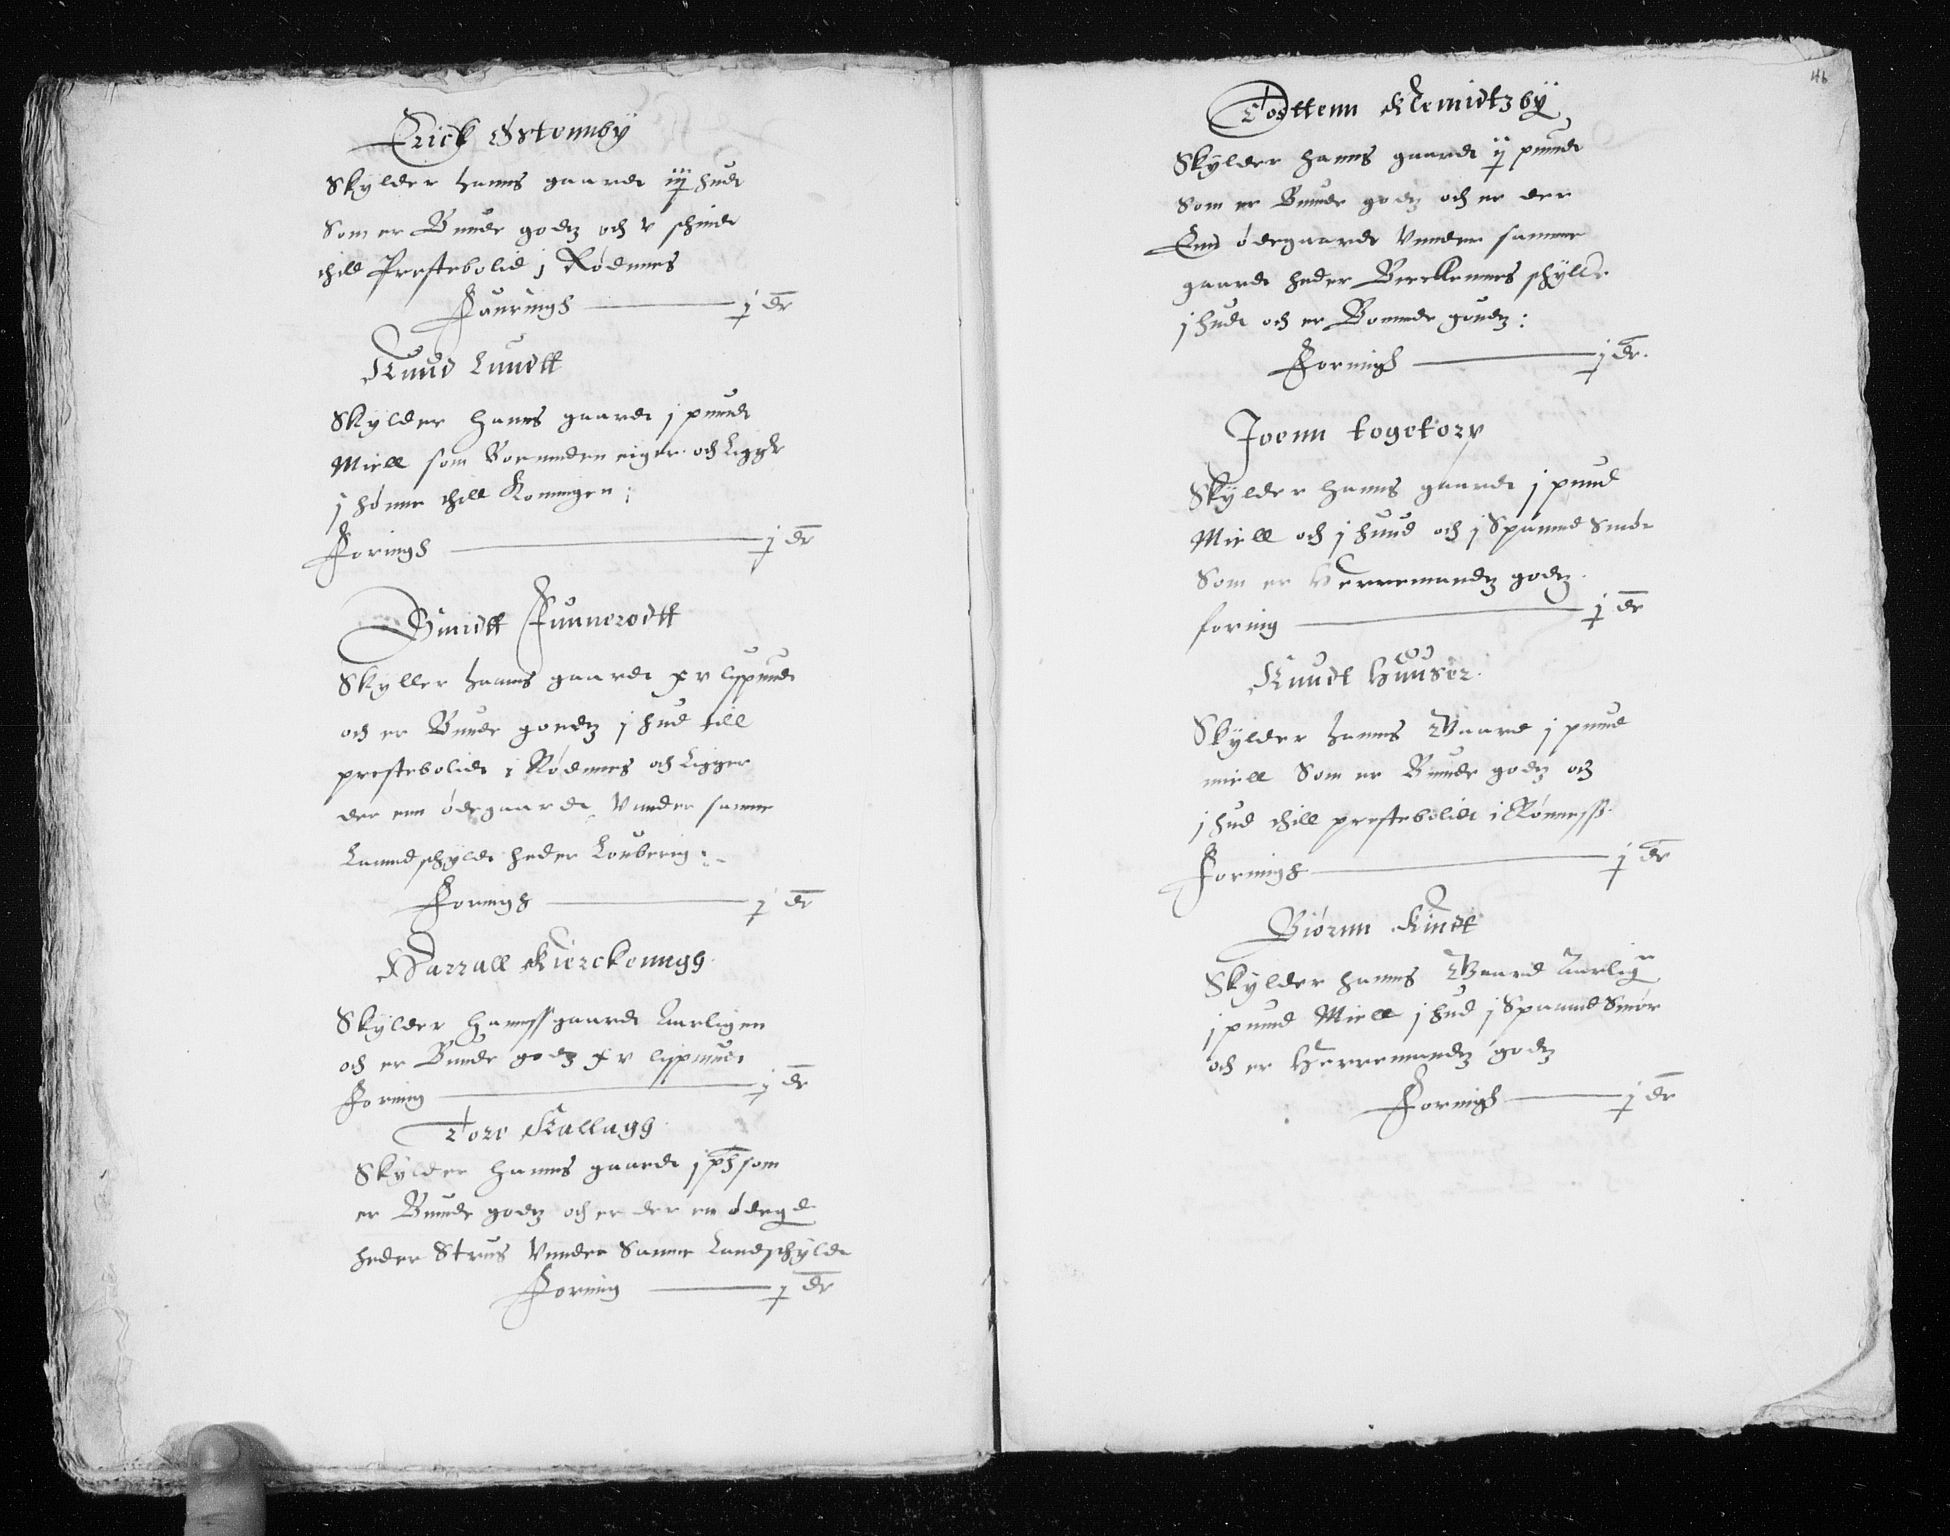 Erick Østennby
Skylder hanns gaardt iij hudt
Som er Bunde godz och v schindt
thill Prestebolid j Rødnnes
Fouringh ——— j dr
Knud Lundtt
Skylder hanns gaardt j pundt
Miell som Boennden eiger och Ligger
j hønne thill Konningen;
Foringh ——— j dr
Smidtt Funnerodtt
Skyller hanns gaardt xv lispundt
och er Bunde goedz j hud till
prestebolidt i Rødnnes och Ligger
der enn ødegaardt Vnnder samme
Lanndschyldt heder Louberig:
Foringh ——— j dr
Harrall Kierckenngh
Skylder Hanness gaardt Aarligen
och er Bunde godz xv lispundt
Foring ——— j dr
Tore Kallagh
Skylder hanns gaardt j pd som
er Bunde godz och er der en ødegd
heder Strus Vnnder Samme Landschyldt
Foring ——— j dr
46
Tosttenn Klemidtzbÿ
Skÿlder hanns gaardt ij pundt
Som er Bunde godz och er der
Enn ødegaardt Vnnder samme
gaardt heder Bierkennes schyller
j hudt och er Boennde goudz:
Foringh ——— j dr.
Joenn togetorp
Skÿlder hanns gaardt j pund
Miell och j huud och j Spannd Smør
Som er Herremandz godz
foring ——— j dr
Knudt Huuser
Skÿlder hanns Gaard j pund
miell Som er Bunde godz och
j hud thill prestebolidt i Rønness
Foringh ——— j dr
Biørnn Kindt
Skÿlder hanns Gaard Aarligen
j pund Miell j hud j Spannd Smør
och er Herremandz godz
Foringh ——— j dr